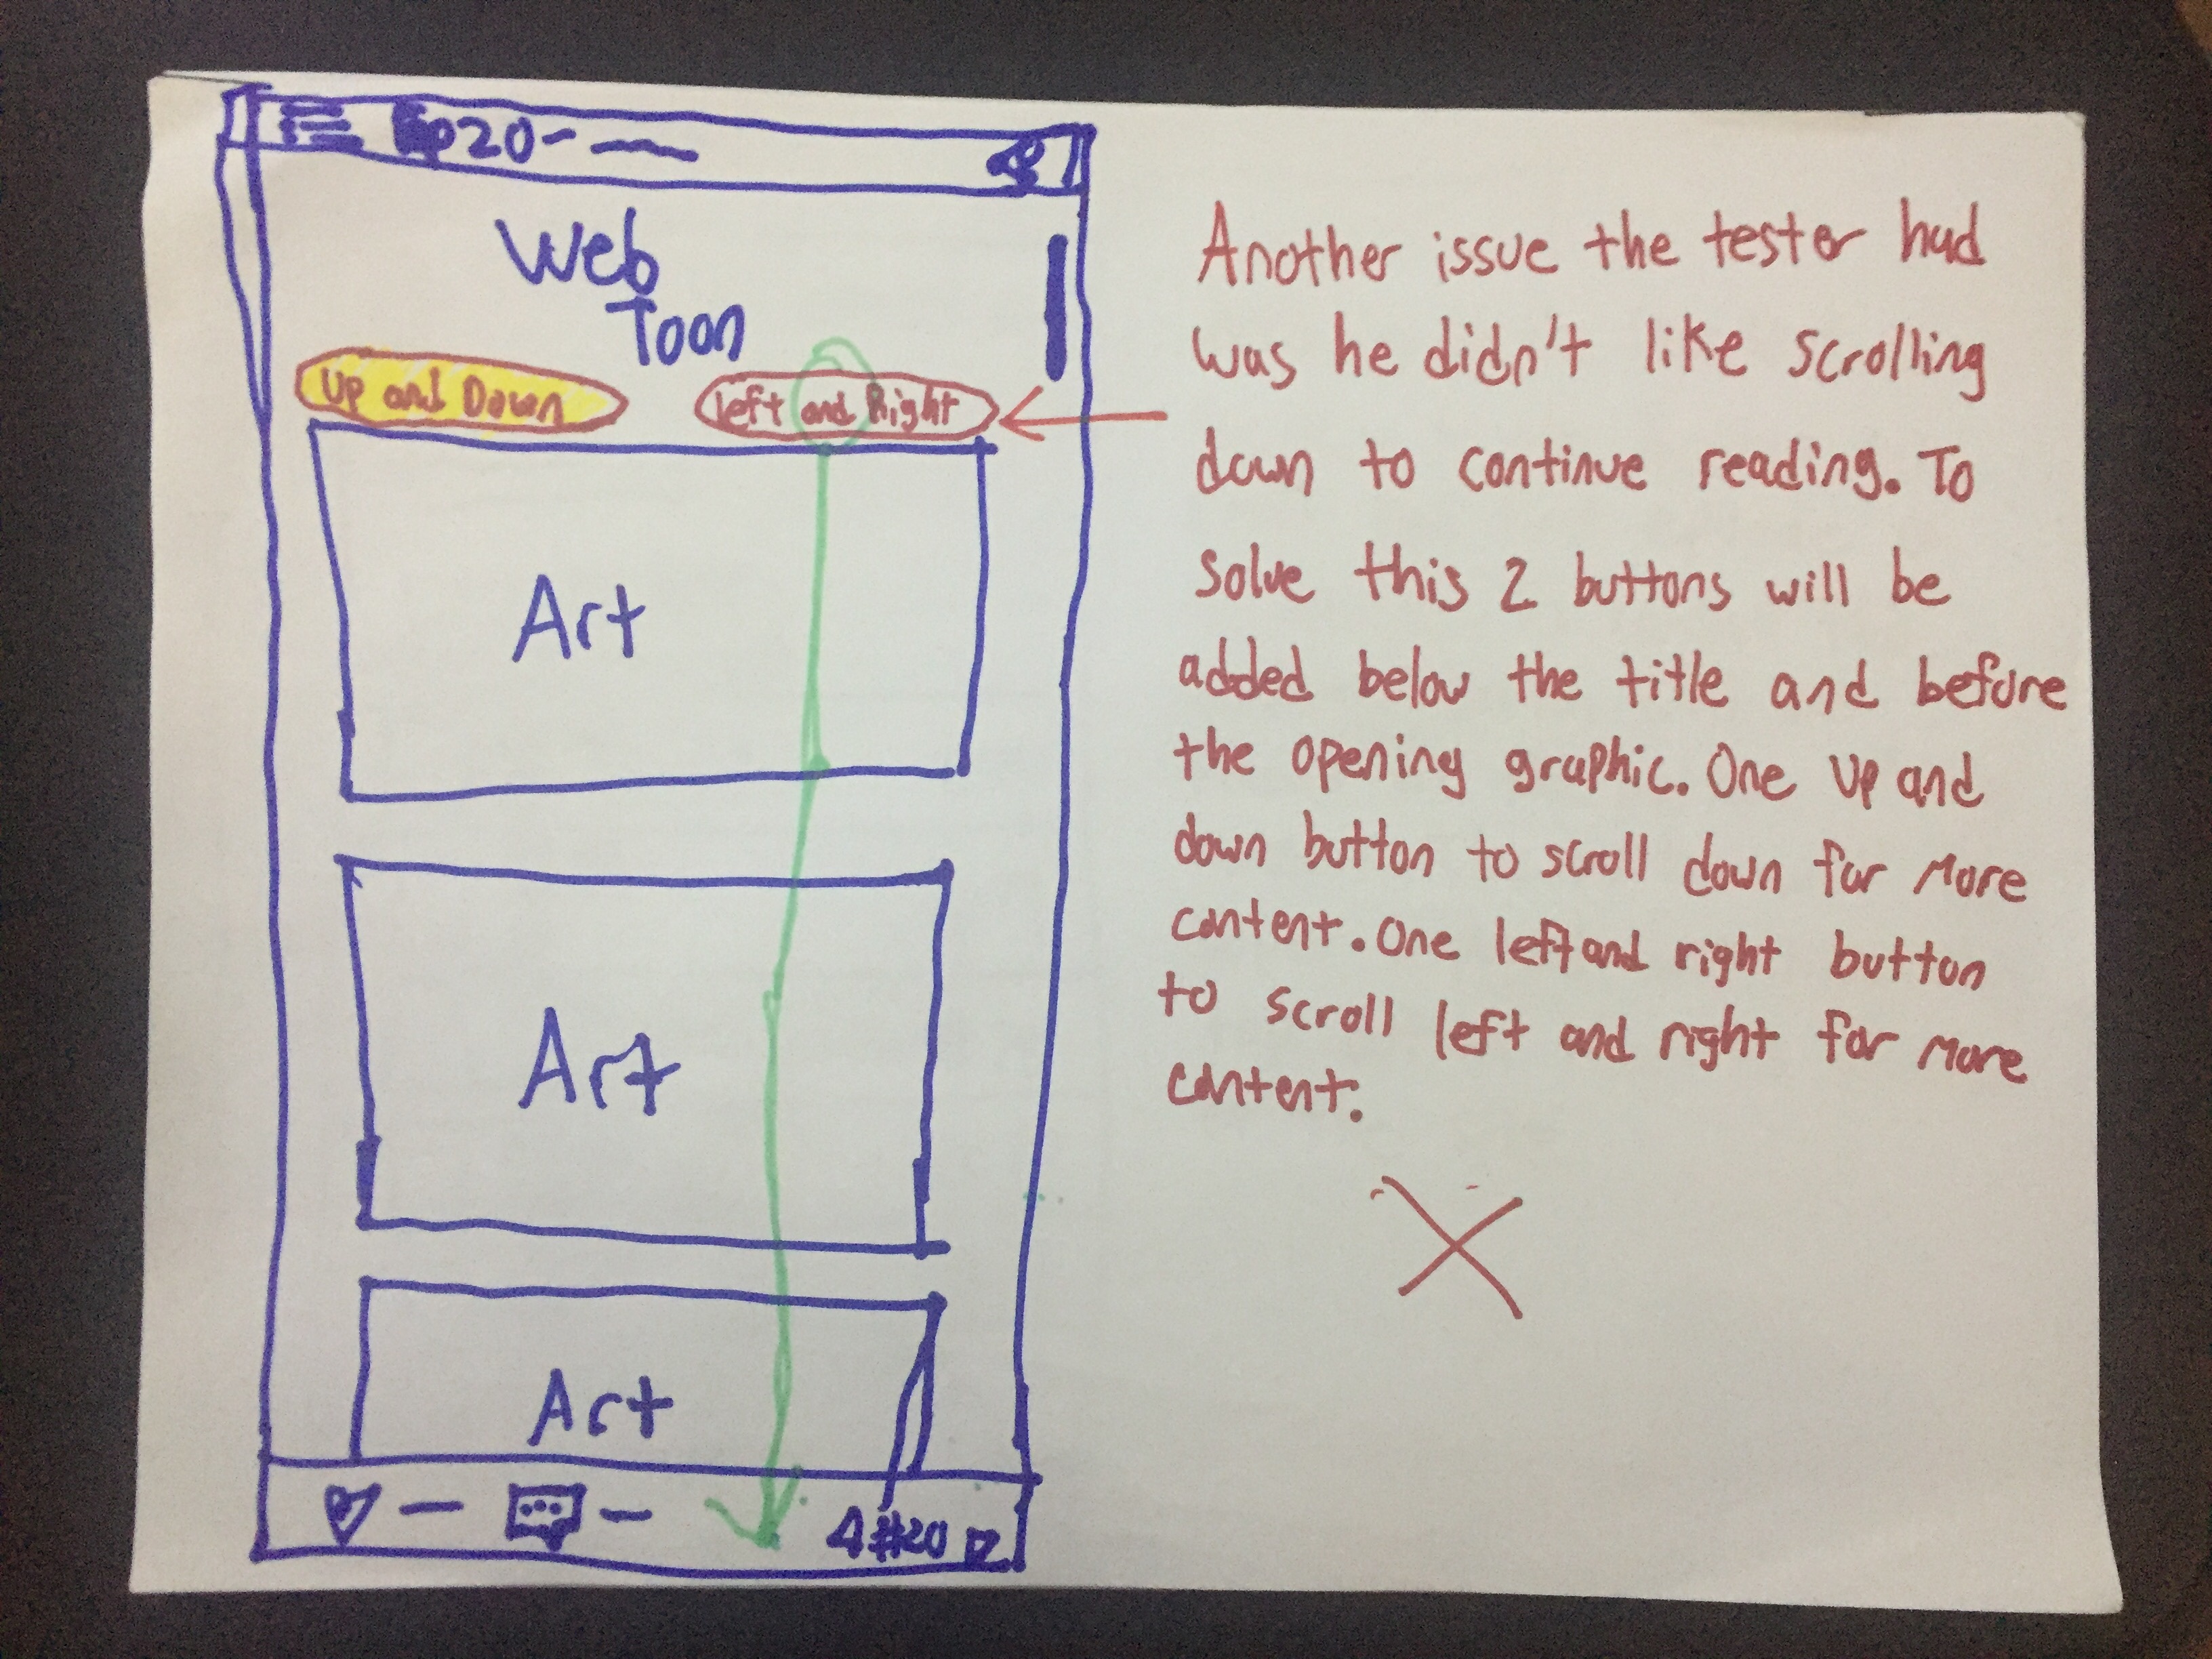 Ep20-
Web
Toon
Up and Down
left and Right
Art
Art
Art
#20
Another issue the tester had
was he didn't like scrolling
down to continue reading. To
solve this 2 buttons will be
added below the title and before
the opening graphic. One up and
down button to scroll down for more
content. One left and right button
to scroll left and right for more
content.